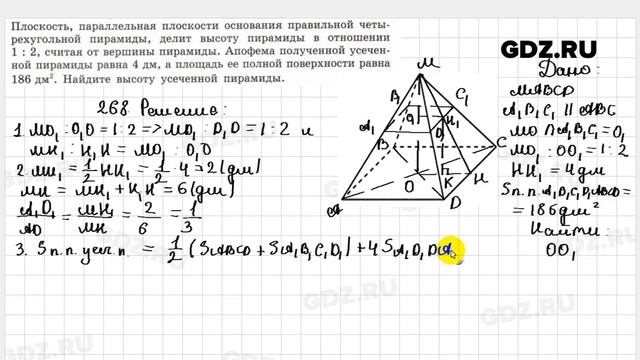 Плоскость, параллельная плоскости основания правильной четы-
рехугольной пирамиды, делит высоту пирамиды в отношении
1 : 2, считая от вершины пирамиды. Апофема полученной усечен-
ной пирамиды равна 4 дм, а площадь ее полной поверхности равна
186 дм². Найдите высоту усеченной пирамиды.
GDZ.RU
268 Решение:
1. MO₁ : O₁O = 1 : 2 => MD₁ : D₁D = 1 : 2 и
MH₁ : H₁H = MO₁ : O₁O
2. MH₁ = 1/2 HH₁ = 1/2 · 4 = 2 (дм)
MH = MH₁ + H₁H = 6 (дм)
A₁D₁/AD = MH₁/MH = 2/6 = 1/3
3. Sп.п.усеч.п. = 1/2 (SABCD + SA₁B₁C₁D₁) + 4 SA₁D₁DA
M
B₁
C₁
A₁
O₁
H₁
D₁
B
C
O
K
H
A
D
Дано:
MABCD
A₁B₁C₁ || ABC
MO ∩ A₁B₁C₁ = O₁
MO₁ : OO₁ = 1 : 2
HH₁ = 4 дм
Sп.п. A₁B₁C₁D₁ABCD =
= 186 дм²
Найти:
OO₁